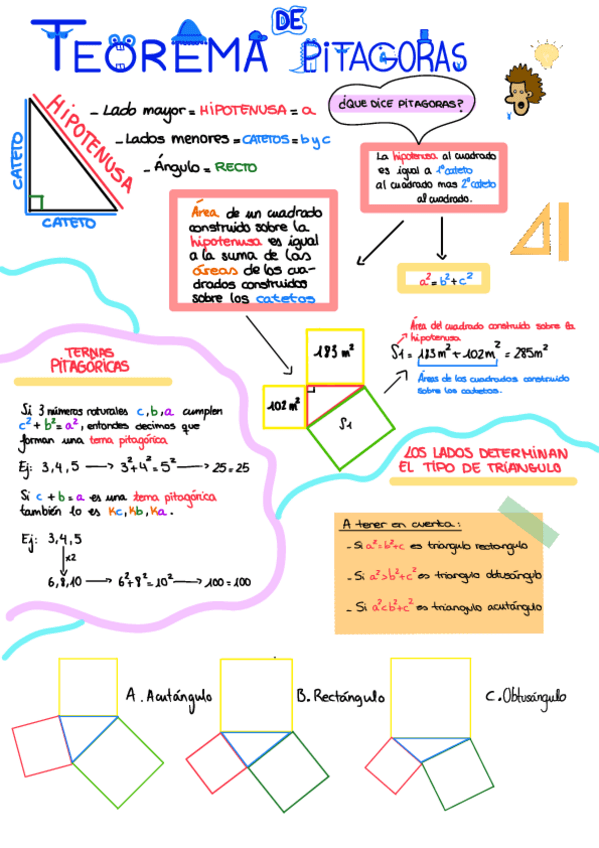 TEOREMA DE PITAGORAS
HIPOTENUSA
CATETO
CATETO
- Lado mayor = HIPOTENUSA = a
- Lados menores = CATETOS = b y c
- Ángulo = RECTO
¿QUE DICE PITAGORAS?
La hipotenusa al cuadrado
es igual a 1º cateto
al cuadrado mas 2º cateto
al cuadrado.
Área de un cuadrado
construido sobre la
hipotenusa es igual
a la suma de las
áreas de los cua-
drados construidos
sobre los catetos
a² = b² + c²
183 m²
102 m²
S1
Área del cuadrado construido sobre la
hipotenusa
S1 = 183 m² + 102 m² = 285m²
Áreas de los cuadrados construido
sobre los catetos.
TERNAS
PITAGORICAS
Si 3 números naturales c, b, a cumplen
c² + b² = a², entondes decimos que
forman una terna pitagórica
Ej: 3, 4, 5 → 3² + 4² = 5² → 25 = 25
Si c + b = a es una terna pitagórica
también lo es Kc, Kb, Ka.
Ej: 3, 4, 5
x2
6, 8, 10 → 6² + 8² = 10² → 100 = 100
LOS LADOS DETERMINAN
EL TIPO DE TRÍANGULO
A tener en cuenta:
- Si a² = b² + c es triangulo rectangulo
- Si a² > b² + c² es triangulo obtusángulo
- Si a² < b² + c² es triangulo acutángulo
A. Acutángulo
B. Rectángulo
C. Obtusángulo